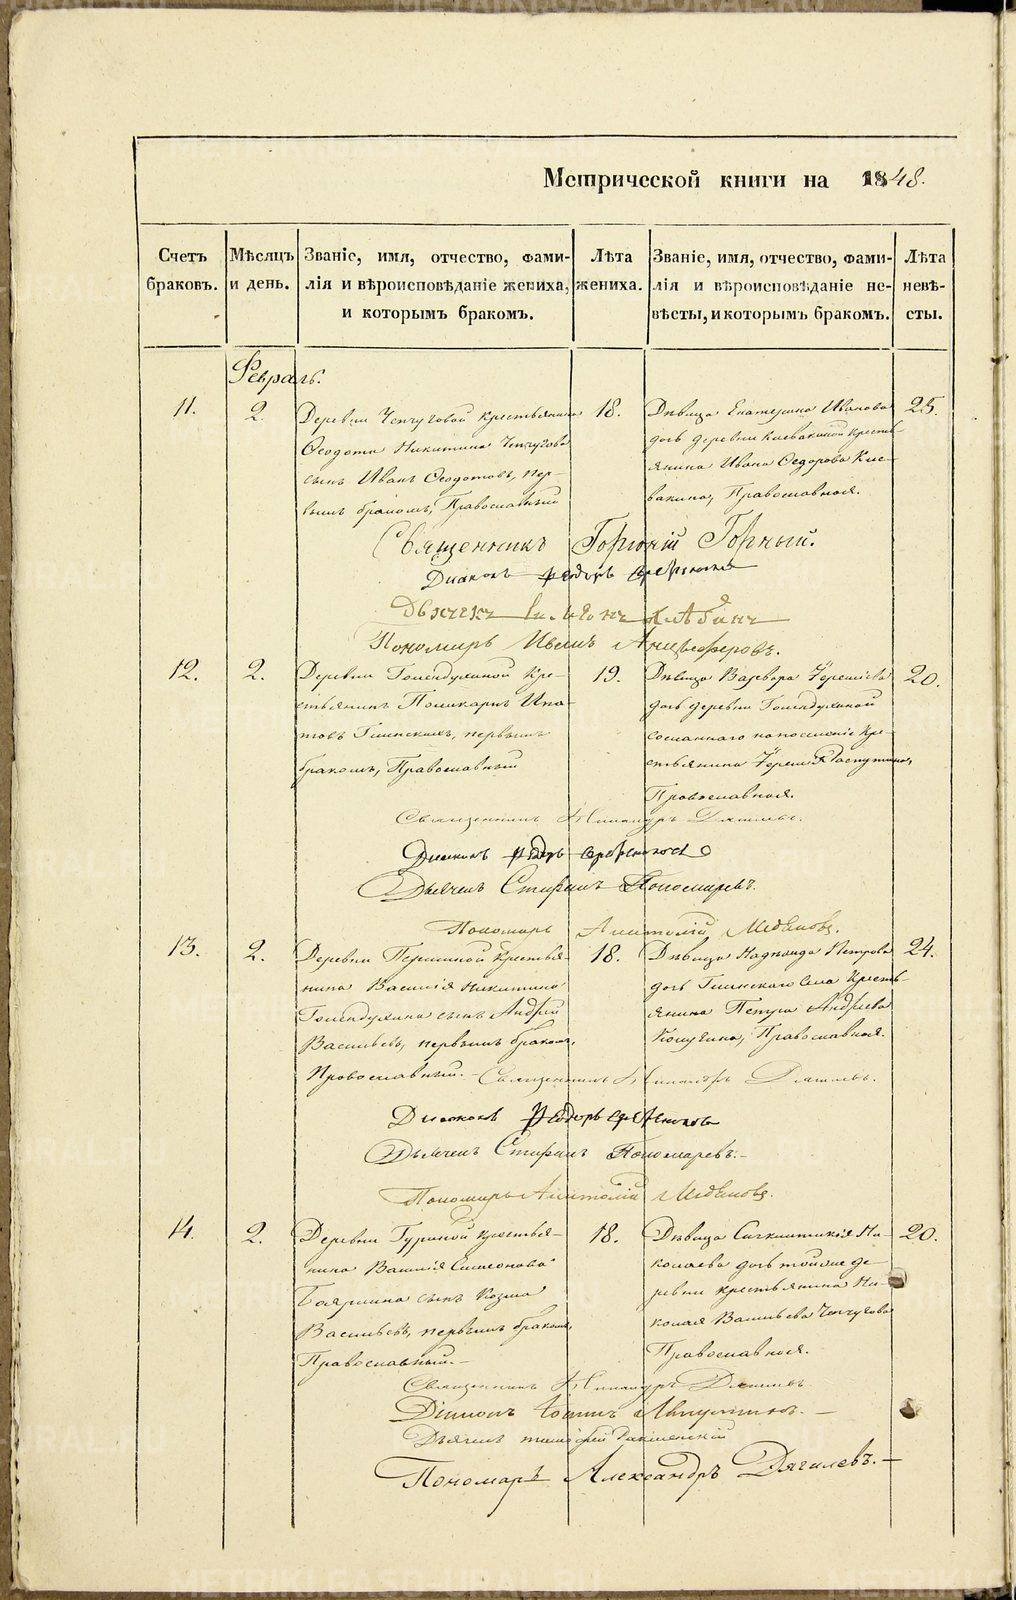 METRIKI.GASO-URAL.RU
Метрической книги на 1848.
Счетъ браковъ.
Мѣсяцъ и день.
Званіе, имя, отчество, фами-
лія и вѣроисповѣданіе жениха,
и которымъ бракомъ.
Лѣта жениха.
Званіе, имя, отчество, фами-
лія и вѣроисповѣданіе не-
вѣсты, и которымъ бракомъ.
Лѣта невѣ-
сты.
Февраль.
11.
2.
Деревни Чепчуговой крестьянина
Ѳеодота Никитина Чепчугова
сынъ Иванъ Ѳеодотовъ, пер-
вымъ бракомъ, Православный
18.
Дѣвица Екатерина Иванова
дочь деревни крестья-
янина Ивана Ѳедорова Кие-
вакина, Православная.
25.
Священникъ Горгоній Горный.
Діаконъ Федоръ
Дьячекъ
Пономарь Иванъ Анцыферовъ.
12.
2.
Деревни Голендухиной кре-
стьянинъ Поликарпъ Ипа-
товъ Глинскихъ, первымъ
бракомъ, Православный
19.
Дѣвица Варвара
дочь деревни Голендухиной
сосланнаго на поселеніе кре-
стьянина Распутина,
Православная.
20.
Священникъ Никандръ Дягилевъ.
Діаконъ Федоръ
Дьячекъ Стефанъ Пономаревъ.
Пономарь Анатолій
13.
2.
Деревни Першиной крестья-
нина Василія Никитина
Голендухина сынъ Андрей
Васильевъ, первымъ бракомъ,
Православный.
18.
Дѣвица Надежда Петрова
дочь Глинскаго села кресть-
янина Петра Андреева
Православная.
24.
Священникъ Никандръ Дягилевъ.
Діаконъ Федоръ
Дьячекъ Стефанъ Пономаревъ.
Пономарь Анатолій
14.
2.
Деревни Гуриной крестья-
нина Василія Симеонова
сынъ Козма
Васильевъ, первымъ бракомъ,
Православный.
18.
Дѣвица Синклитикія Ни-
колаева дочь той же де-
ревни крестьянина Ни-
колая Васильева Чепчугова
Православная.
20.
Священникъ Никандръ Дягилевъ
Діаконъ Іоаннъ
Дьячекъ
Пономарь Александръ Дягилевъ.